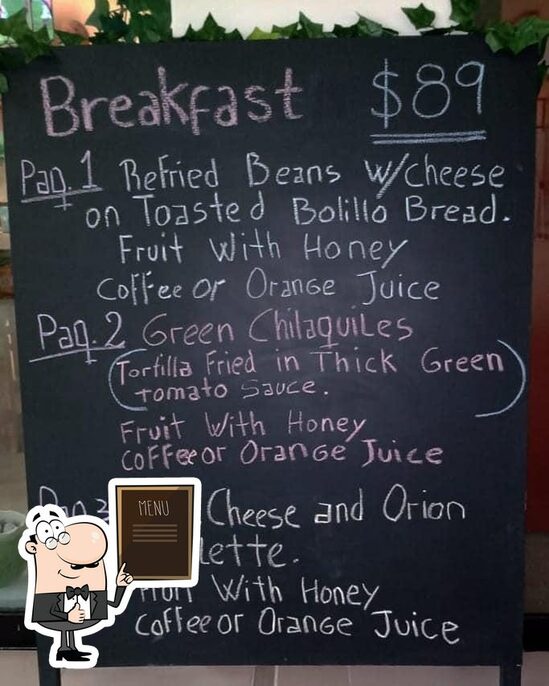 Breakfast $89
Paq. 1 Refried Beans w/cheese
on Toasted Bolillo Bread.
Fruit With Honey
Coffee or Orange Juice
Paq. 2 Green Chilaquiles
(Tortilla Fried in Thick Green
tomato sauce.)
Fruit With Honey
Coffee or Orange Juice
Cheese and Orion
MENU
With Honey
Coffee or Orange Juice